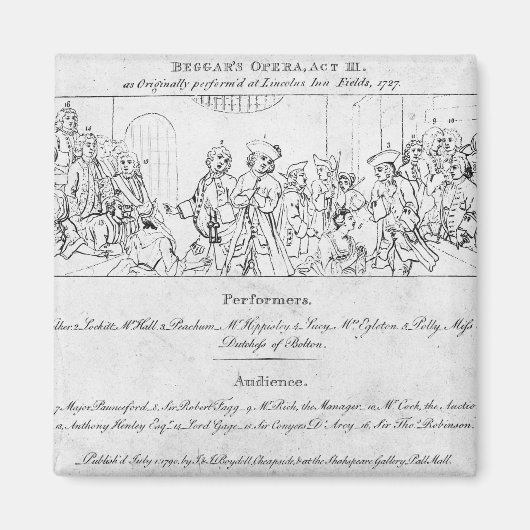 BEGGAR'S OPERA, ACT III.
as Originally perform'd at Lincolns Inn Fields, 1727.
Performers.
lker. 2_Lockitt, Mr. Hall. 3_Peachum, Mr. Hippisley. 4_Lucy, Mrs. Egleton. 5_Polly, Miss
Dutchess of Bolton.
Audience.
7_Major Paunceford_8_Sir Robert Fagg_9_Mr. Rich, the Manager_10_Mr. Cock, the Auctio
13_Anthony Henley Esqr._14_Lord Gage_15_Sir Conyers D'Arcy_16_Sir Thos. Robinson.
Publish'd July 1. 1790, by J. & J. Boydell, Cheapside, & at the Shakspeare Gallery, Pall Mall.